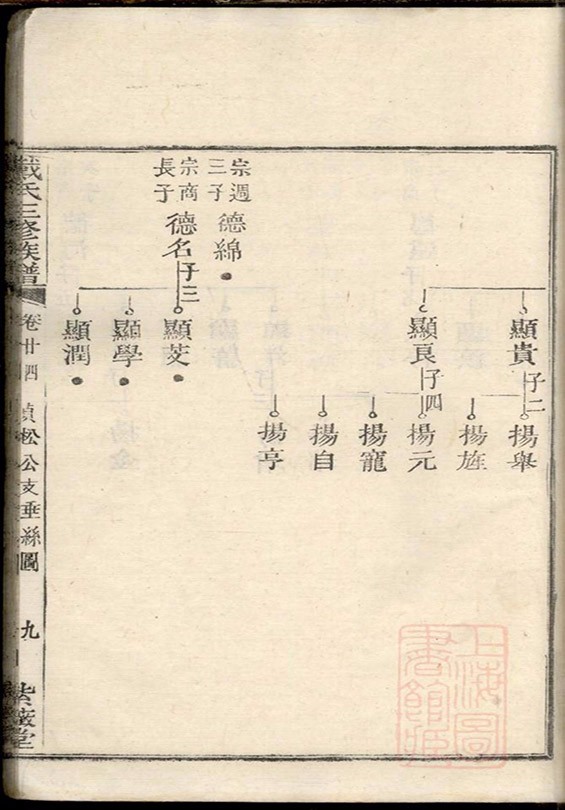 顯貴 子二
揚舉
揚旌
顯良 子四
揚元
揚寵
揚自
揚亨
宗週三子 德綿
宗商長子 德名 子三
顯芰
顯學
顯潤
戴氏三修族譜
卷廿四 貞松公支垂絲圖 九 紫薇堂
上海圖書館藏